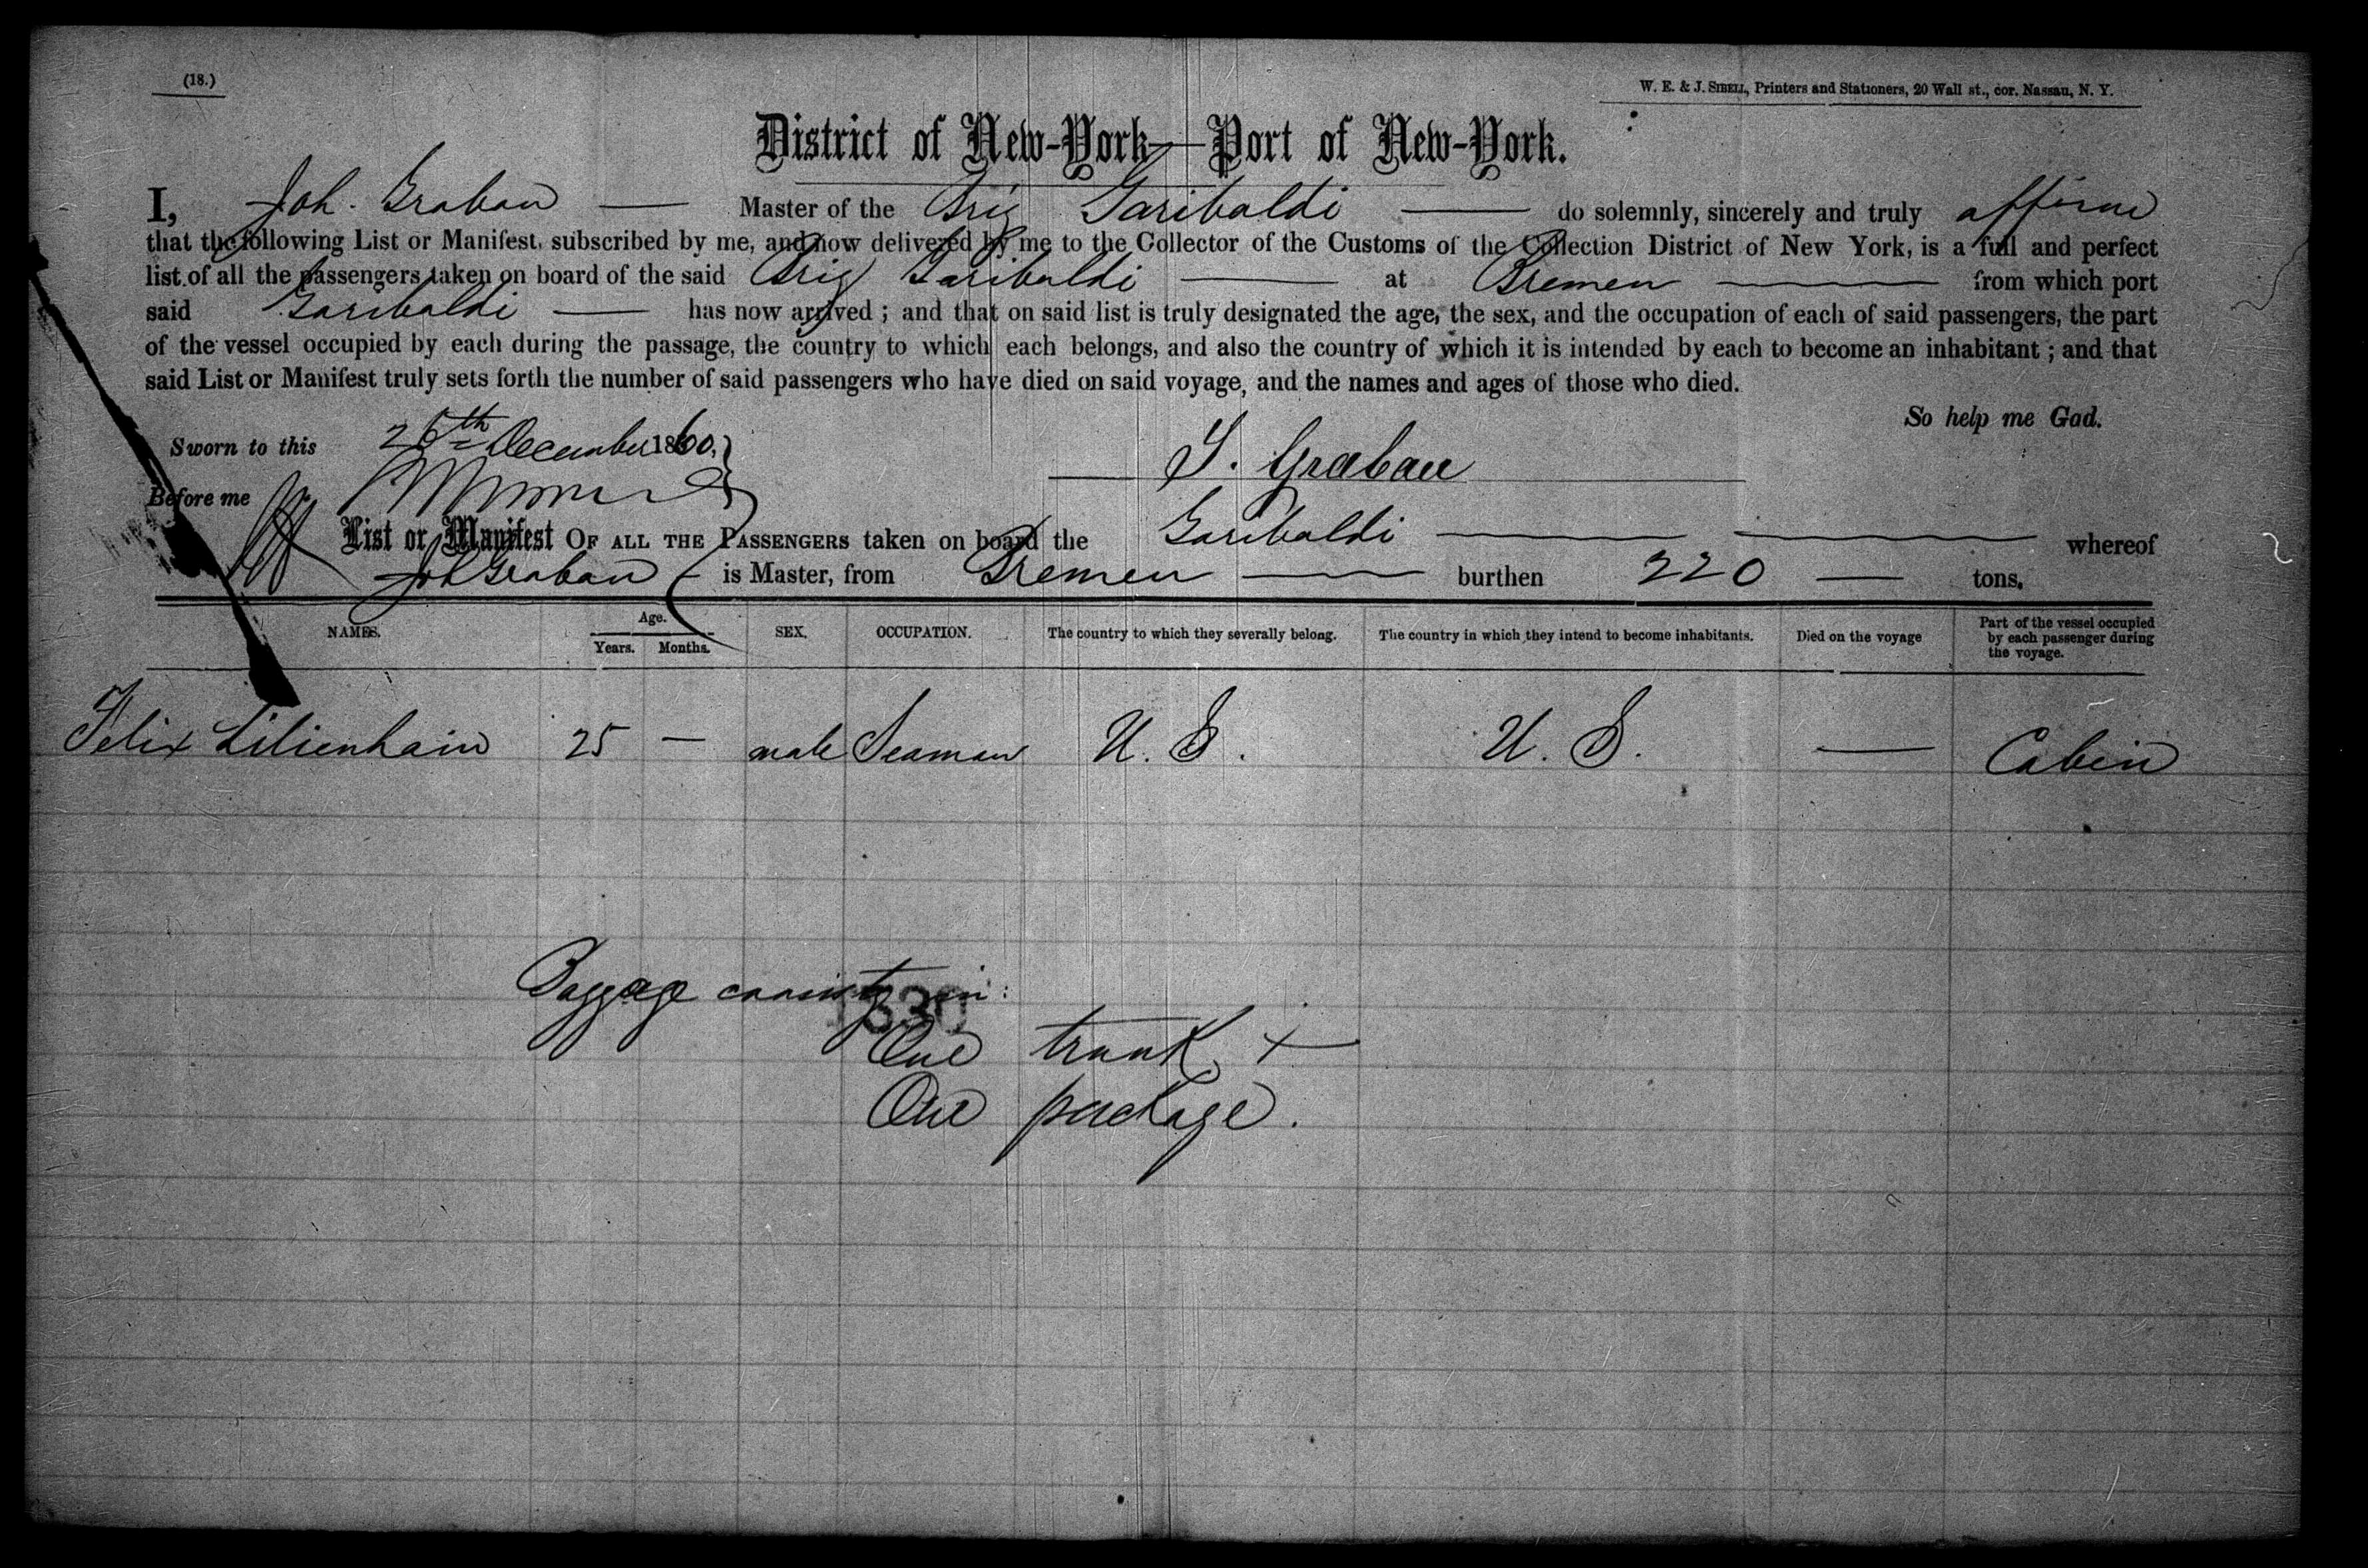 (18.)
W. E. & J. SIBELL, Printers and Stationers, 20 Wall st., cor. Nassau, N. Y.
District of New-York—Port of New-York.
I, Joh. Grabau — Master of the Brig Garibaldi — do solemnly, sincerely and truly affirm
that the following List or Manifest, subscribed by me, and now delivered by me to the Collector of the Customs of the Collection District of New York, is a full and perfect
list of all the passengers taken on board of the said Brig Garibaldi — at Bremen — from which port
said Garibaldi — has now arrived ; and that on said list is truly designated the age, the sex, and the occupation of each of said passengers, the part
of the vessel occupied by each during the passage, the country to which each belongs, and also the country of which it is intended by each to become an inhabitant ; and that
said List or Manifest truly sets forth the number of said passengers who have died on said voyage, and the names and ages of those who died.
So help me Gad.
Sworn to this December 1860,
J. Grabau
Before me
List or Manifest OF ALL THE PASSENGERS taken on board the Garibaldi — — whereof
Joh Grabau — is Master, from Bremen — burthen 220 — tons.
NAMES. Age. Years. Months. SEX. OCCUPATION. The country to which they severally belong. The country in which they intend to become inhabitants. Died on the voyage Part of the vessel occupied by each passenger during the voyage.
Felix Lilienhain 25 — male Seaman U. S. U. S. — Cabin
Baggage in:
1330
One trunk +
One package.